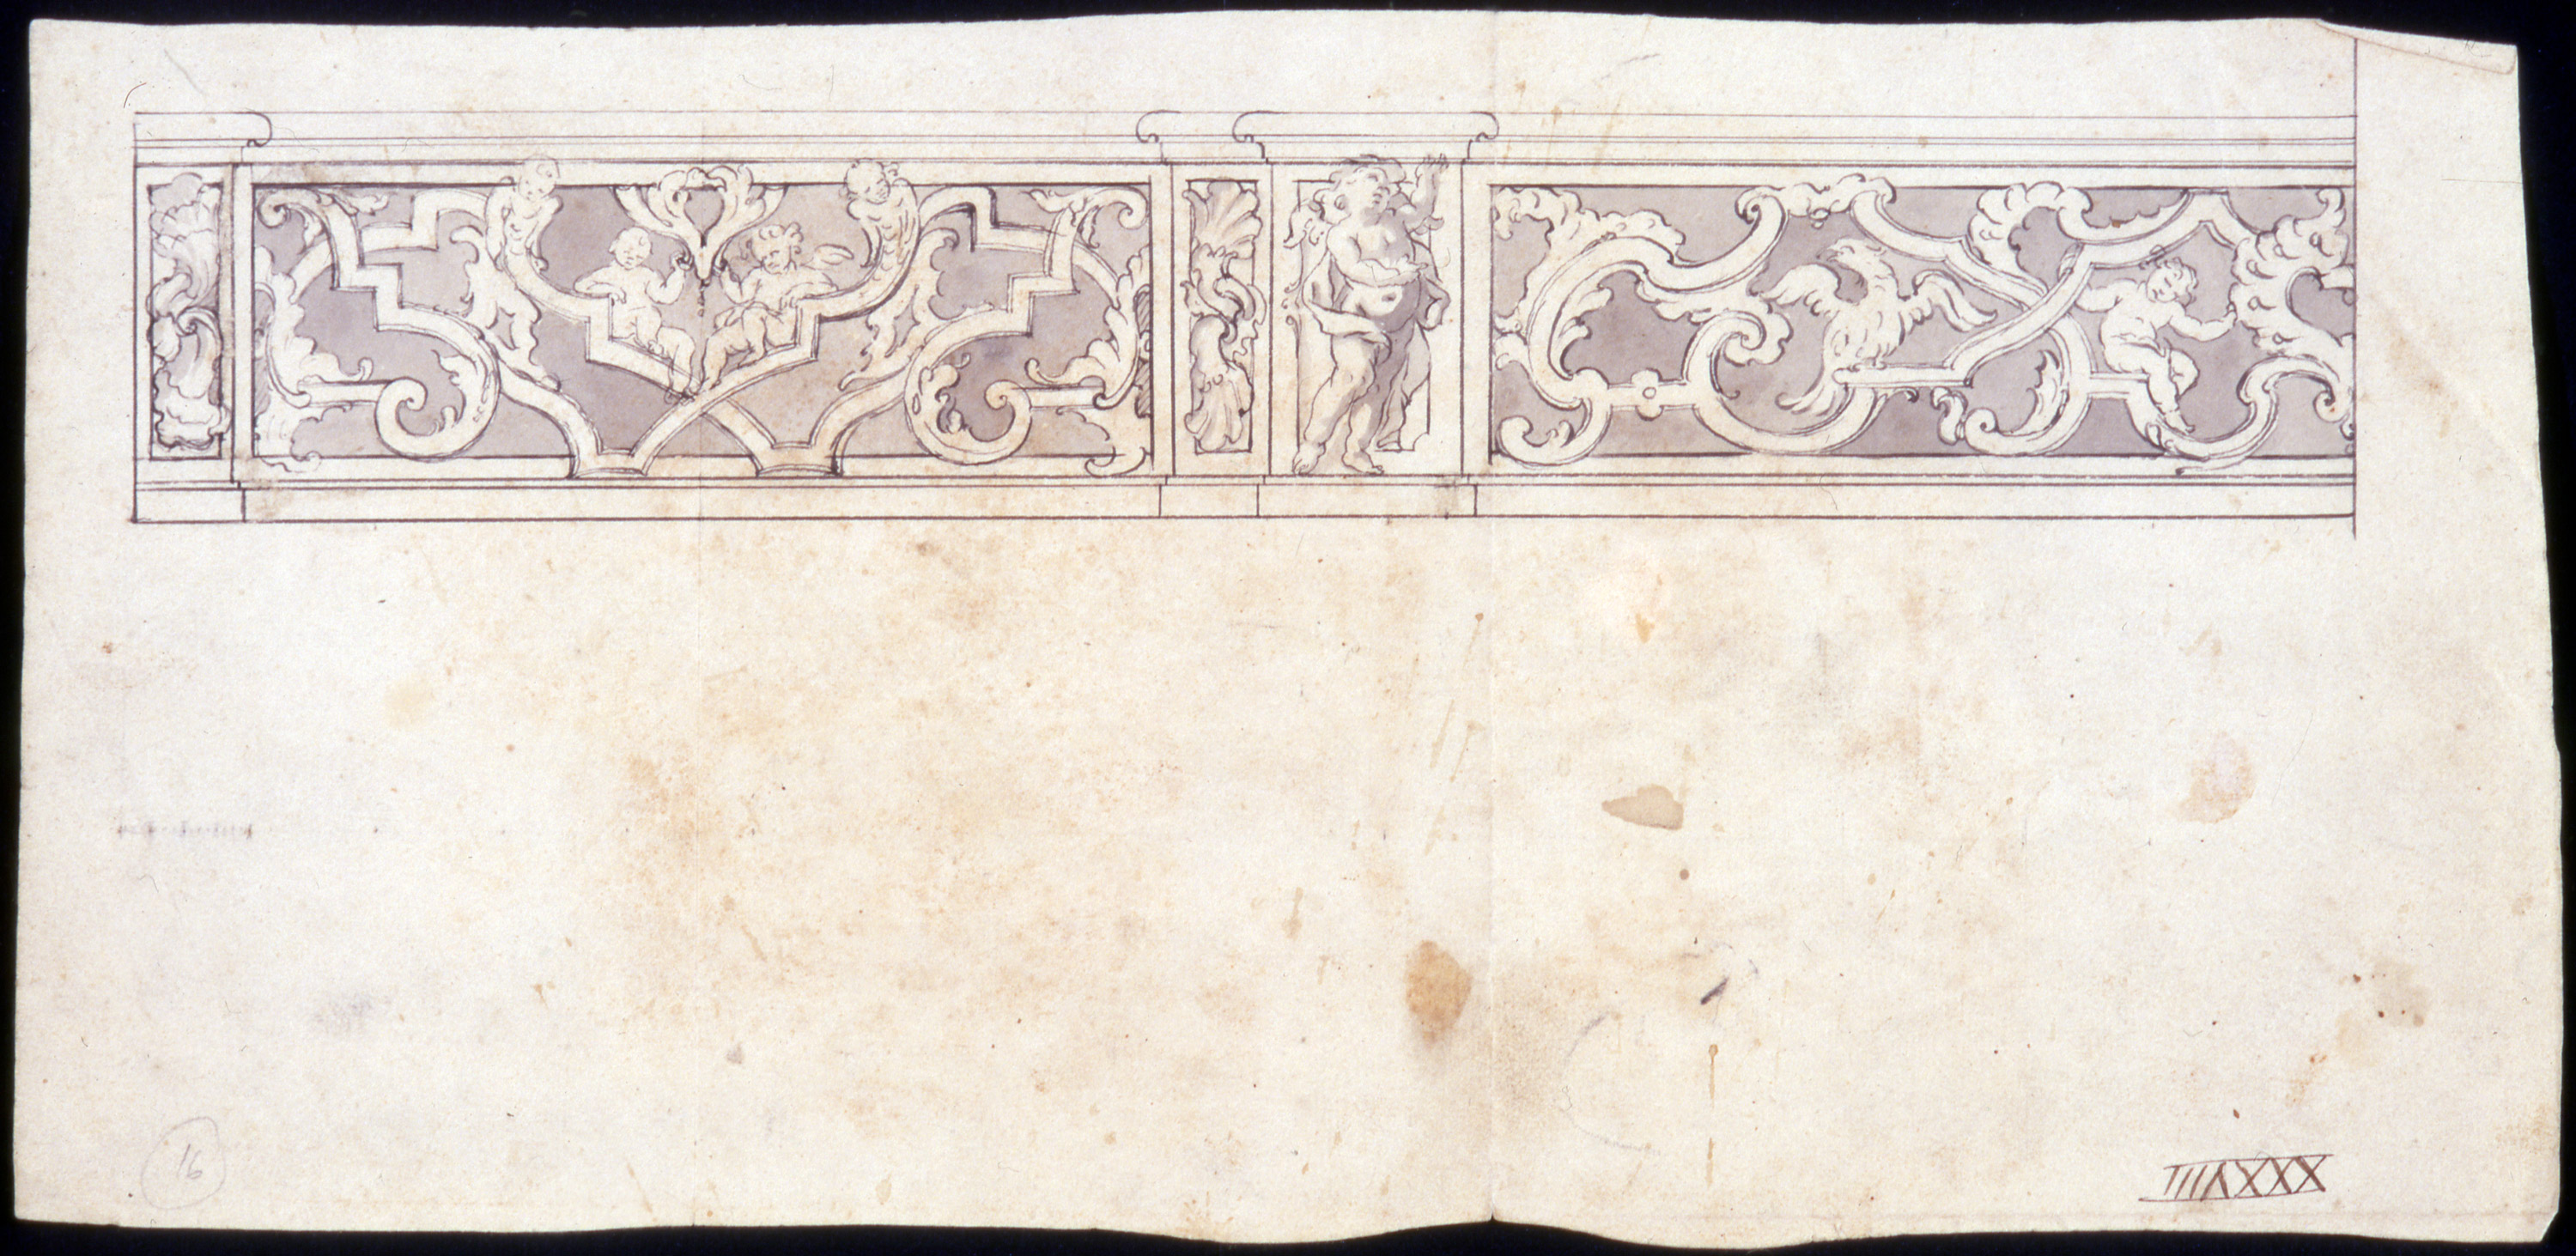 16
XXXVIII